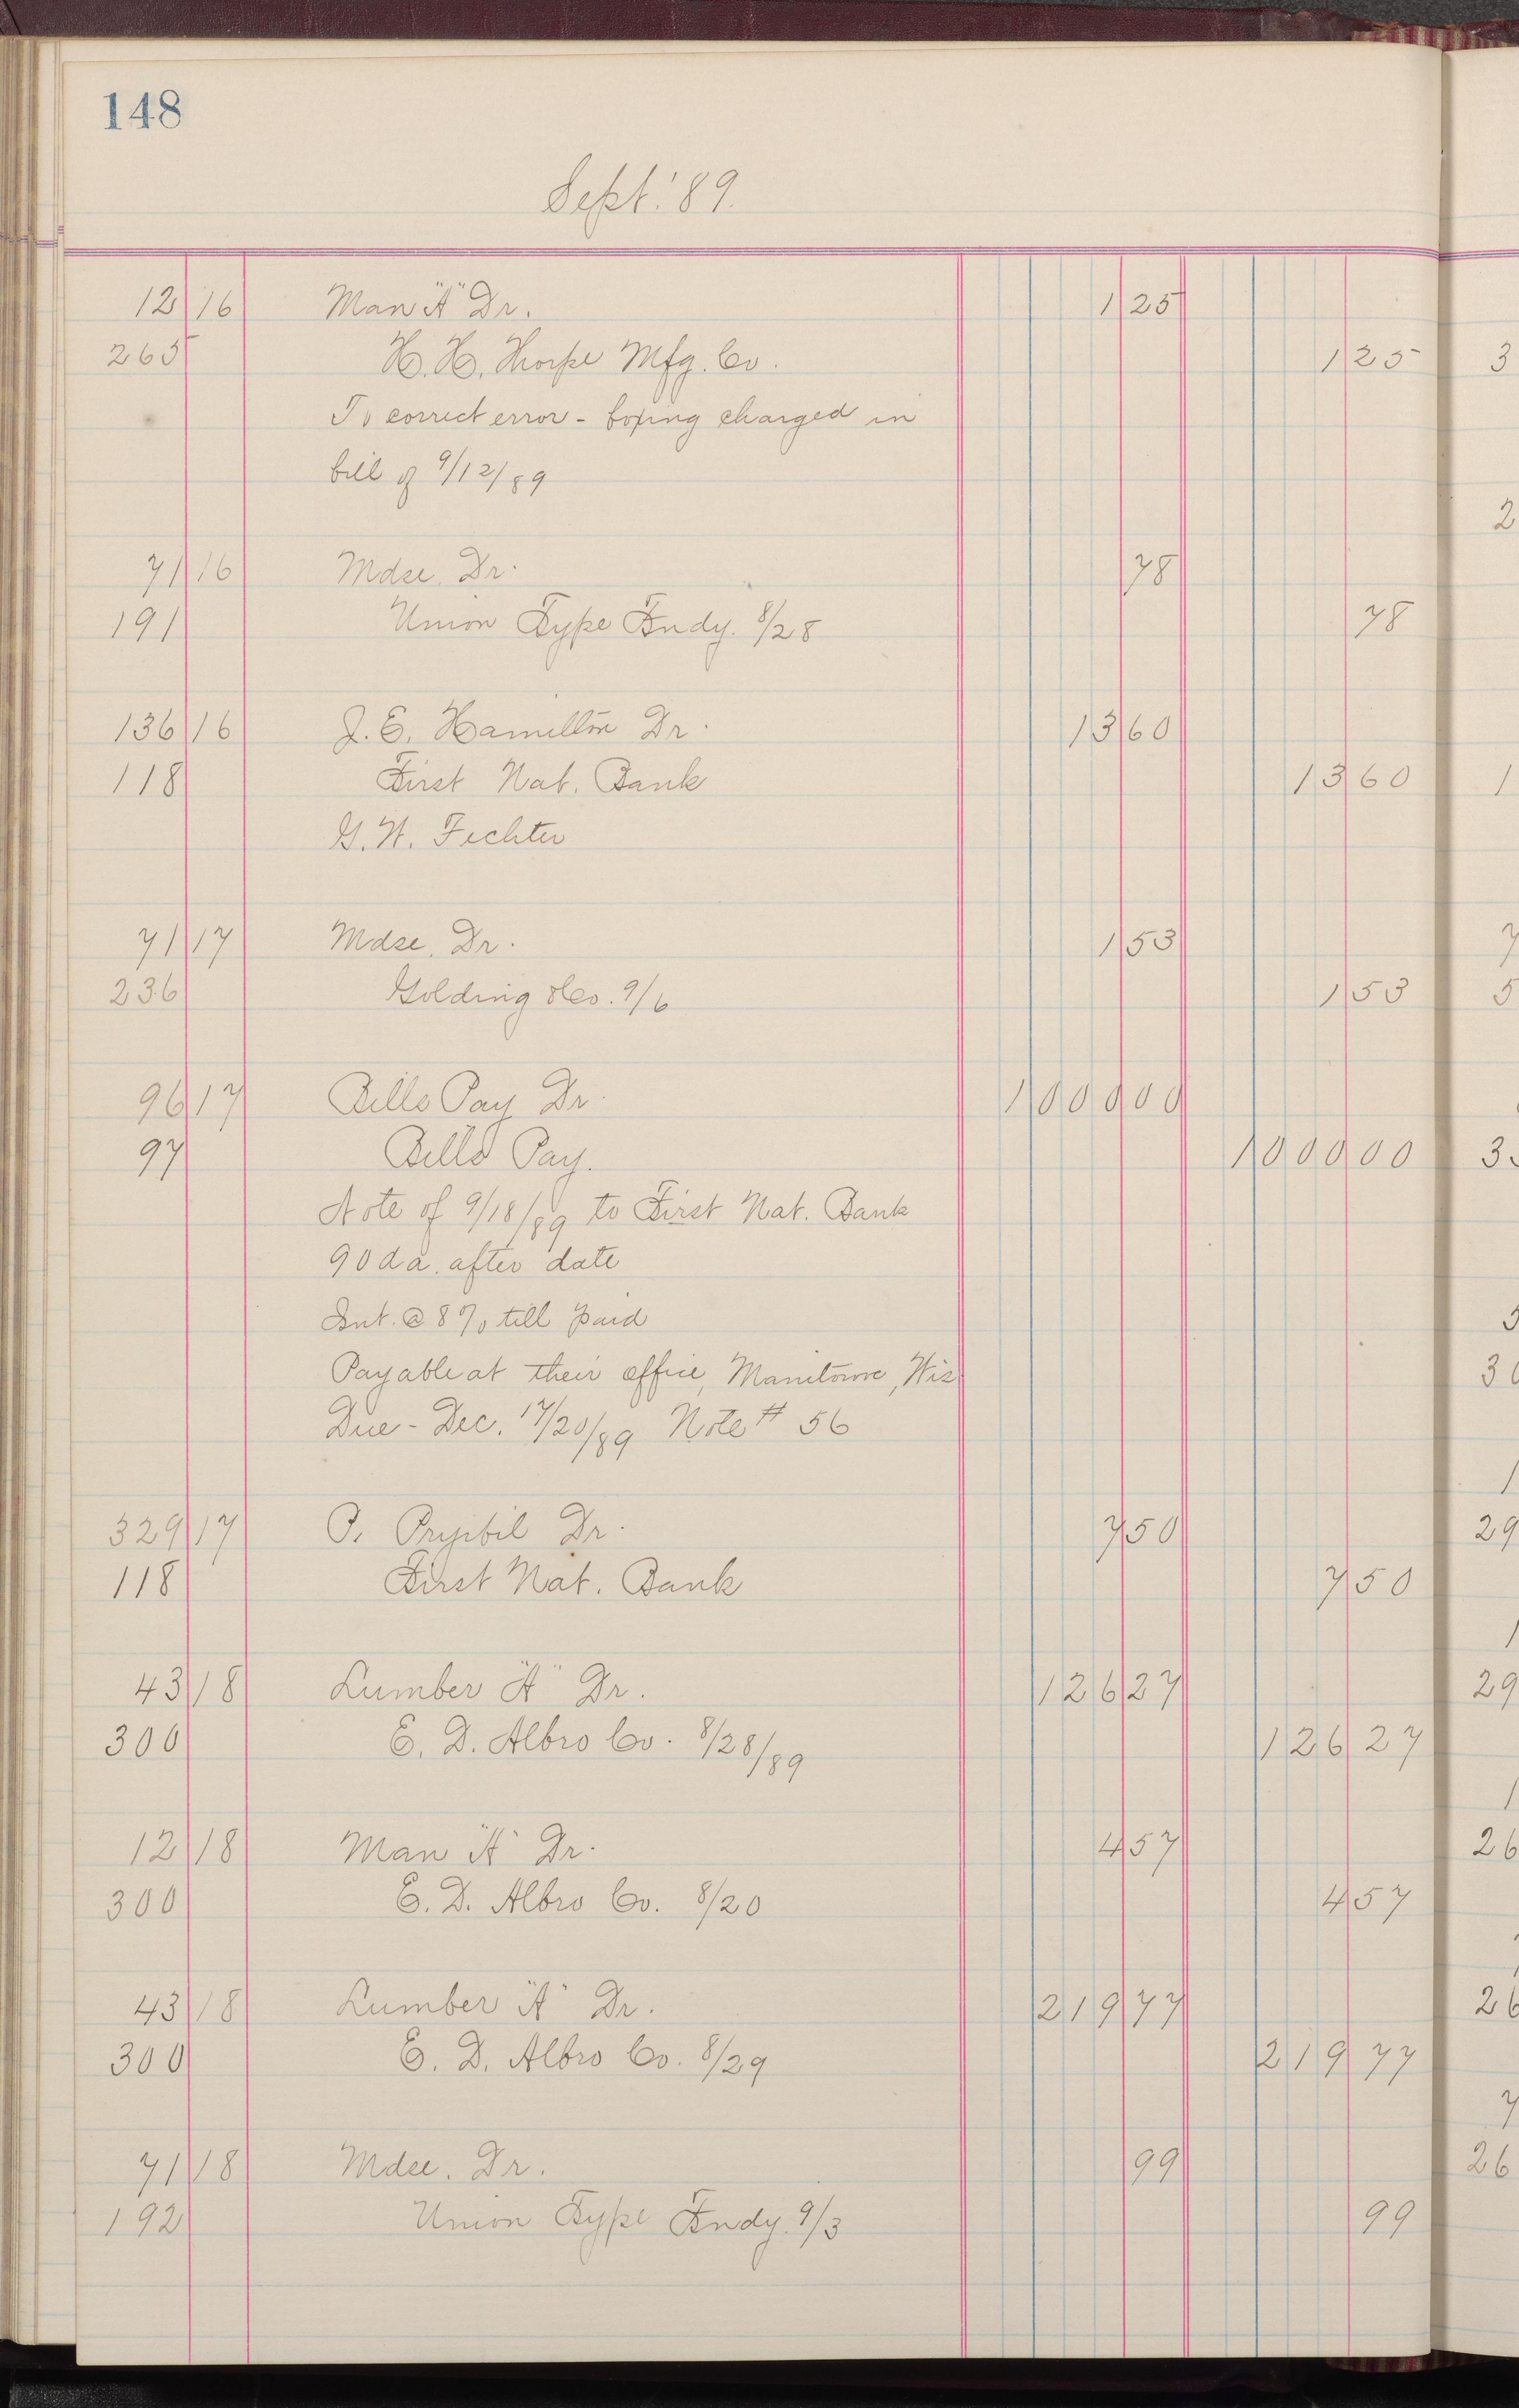 148
Sept. '89.
12 16 Man "A" Dr. 1 25
265 H. H. Thorpe Mfg. Co. 1 25
To correct error - boxing charged in
bill of 9/12/89
71 16 Mdse. Dr. 78
191 Union Type Fndy. 8/28 78
136 16 J. E. Hamilton Dr. 13 60
118 First Nat. Bank 13 60
G. W. Fechter
71 17 Mdse. Dr. 1 53
236 Golding & Co. 9/6 1 53
96 17 Bills Pay Dr. 1000 00
97 Bills Pay. 1000 00
Note of 9/18/89 to First Nat. Bank
90 da. after date
Int. @ 8% till paid
Payable at their office, Manitowoc, Wis
Due - Dec. 17/20/89 Note # 56
329 17 P. Pryibil Dr. 7 50
118 First Nat. Bank 7 50
43 18 Lumber "A" Dr. 126 27
300 E. D. Albro Co. 8/28/89 126 27
12 18 Man "A" Dr. 4 57
300 E. D. Albro Co. 8/20 4 57
43 18 Lumber "A" Dr. 219 77
300 E. D. Albro Co. 8/29 219 77
71 18 Mdse. Dr. 99
192 Union Type Fndy. 9/3 99